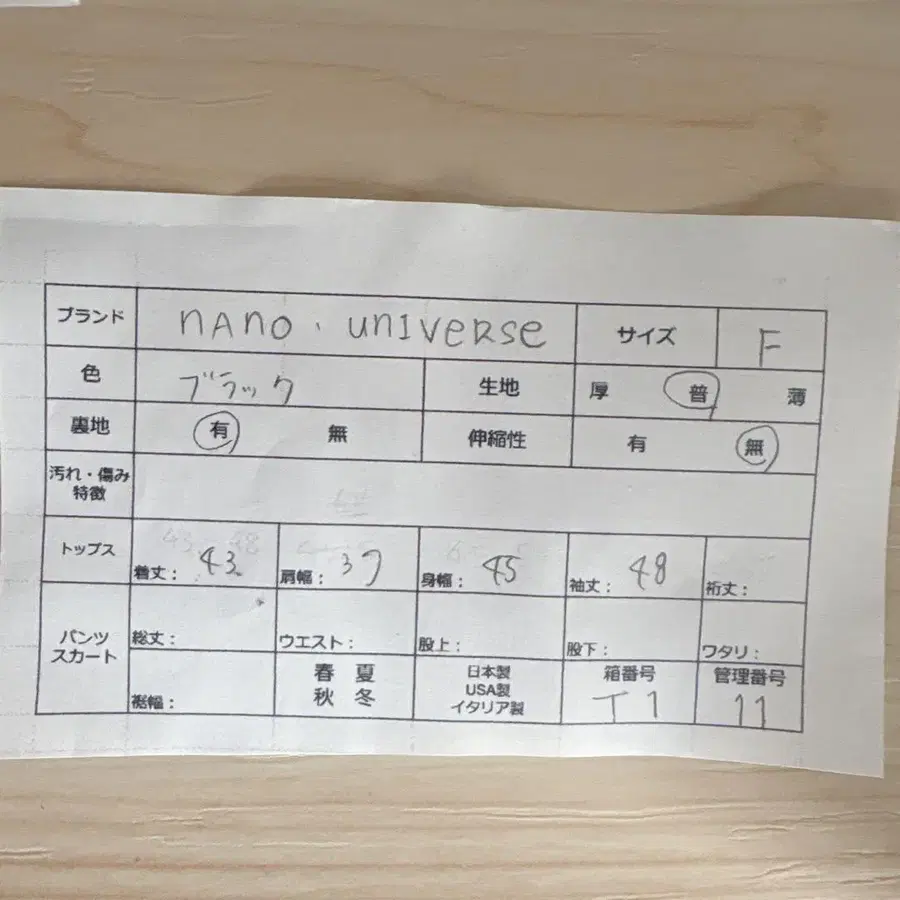 ブランド nAno・unIveRse サイズ F
色 ブラック 生地 厚 普 薄
裏地 有 無 伸縮性 有 無
汚れ・傷み
特徴
トップス 着丈: 43 肩幅: 37 身幅: 45 袖丈: 48 裄丈:
パンツ
スカート
総丈: ウエスト: 股上: 股下: ワタリ:
裾幅:
春 夏
秋 冬
日本製
USA製
イタリア製
箱番号
T1
管理番号
11